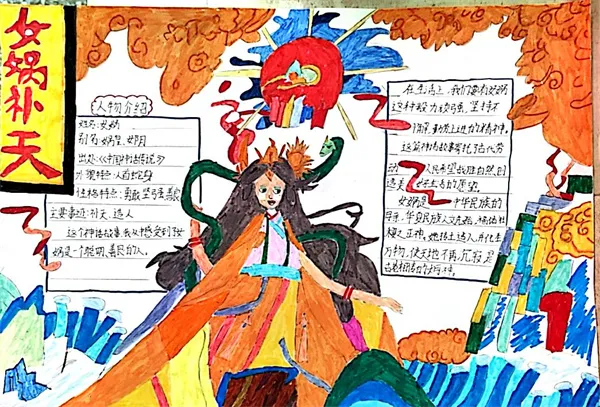 女娲补天
人物介绍
姓名:女娲
别名:娲皇、女阴
出处:《中国神话传说》
外貌特点:人首蛇身
性格特点:勇敢坚强善良
主要事迹:补天、造人
这个神话故事,我从中感受到女
娲是一个聪明、善良的人。
在生活上,我们要有女娲
这种毅力顽强,坚持不
奋发上进的精神。
这篇神话故事寄托了古代劳
动人民希望战胜自然,创
造美好生活的愿望。
女娲是中华民族的
母亲,华夏民族人文先始,福佑社
稷之正神,她抟土造人,并化生
万物,使天地不再沉寂,是